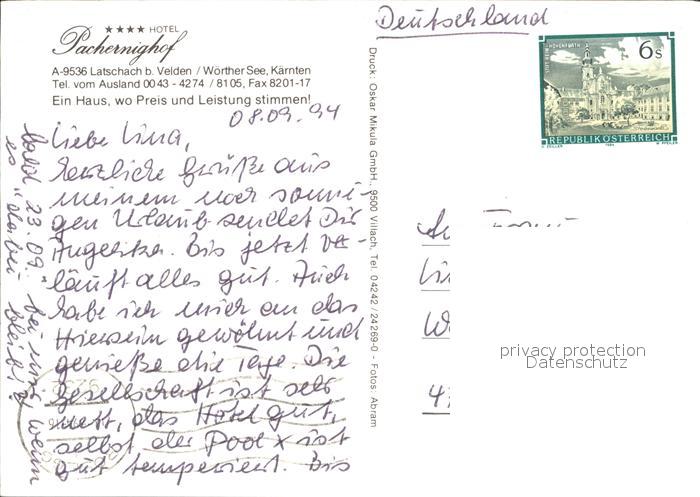 ★★★★ HOTEL
Pachernighof
A-9536 Latschach b. Velden / Wörther See, Kärnten
Tel. vom Ausland 0043 - 4274 / 8105, Fax 8201-17
Ein Haus, wo Preis und Leistung stimmen!
08.09.94
Liebe Lina,
herzliche Grüße aus
meinem noch sonni-
gen Urlaub sendet Dir
Angelika. Bis jetzt ver-
läuft alles gut. Auch
habe ich mich an das
Hiersein gewöhnt und
genieße die Tage. Die
Gesellschaft ist sehr
nett, das Hotel gut,
selbst der Pool ist
gut temperiert. Bis
bald 23.09. bei mir, wenn
es "dabei bleibt"
Druck: Oskar Mikula GmbH., 9500 Villach, Tel. 04242 / 24269-0 - Fotos: Abram
Deutschland
STIFT REIN-HOHENFURTH
6 S
REPUBLIK ÖSTERREICH
O. ZEILLER 1984 W. PFEILER
privacy protection
Datenschutz